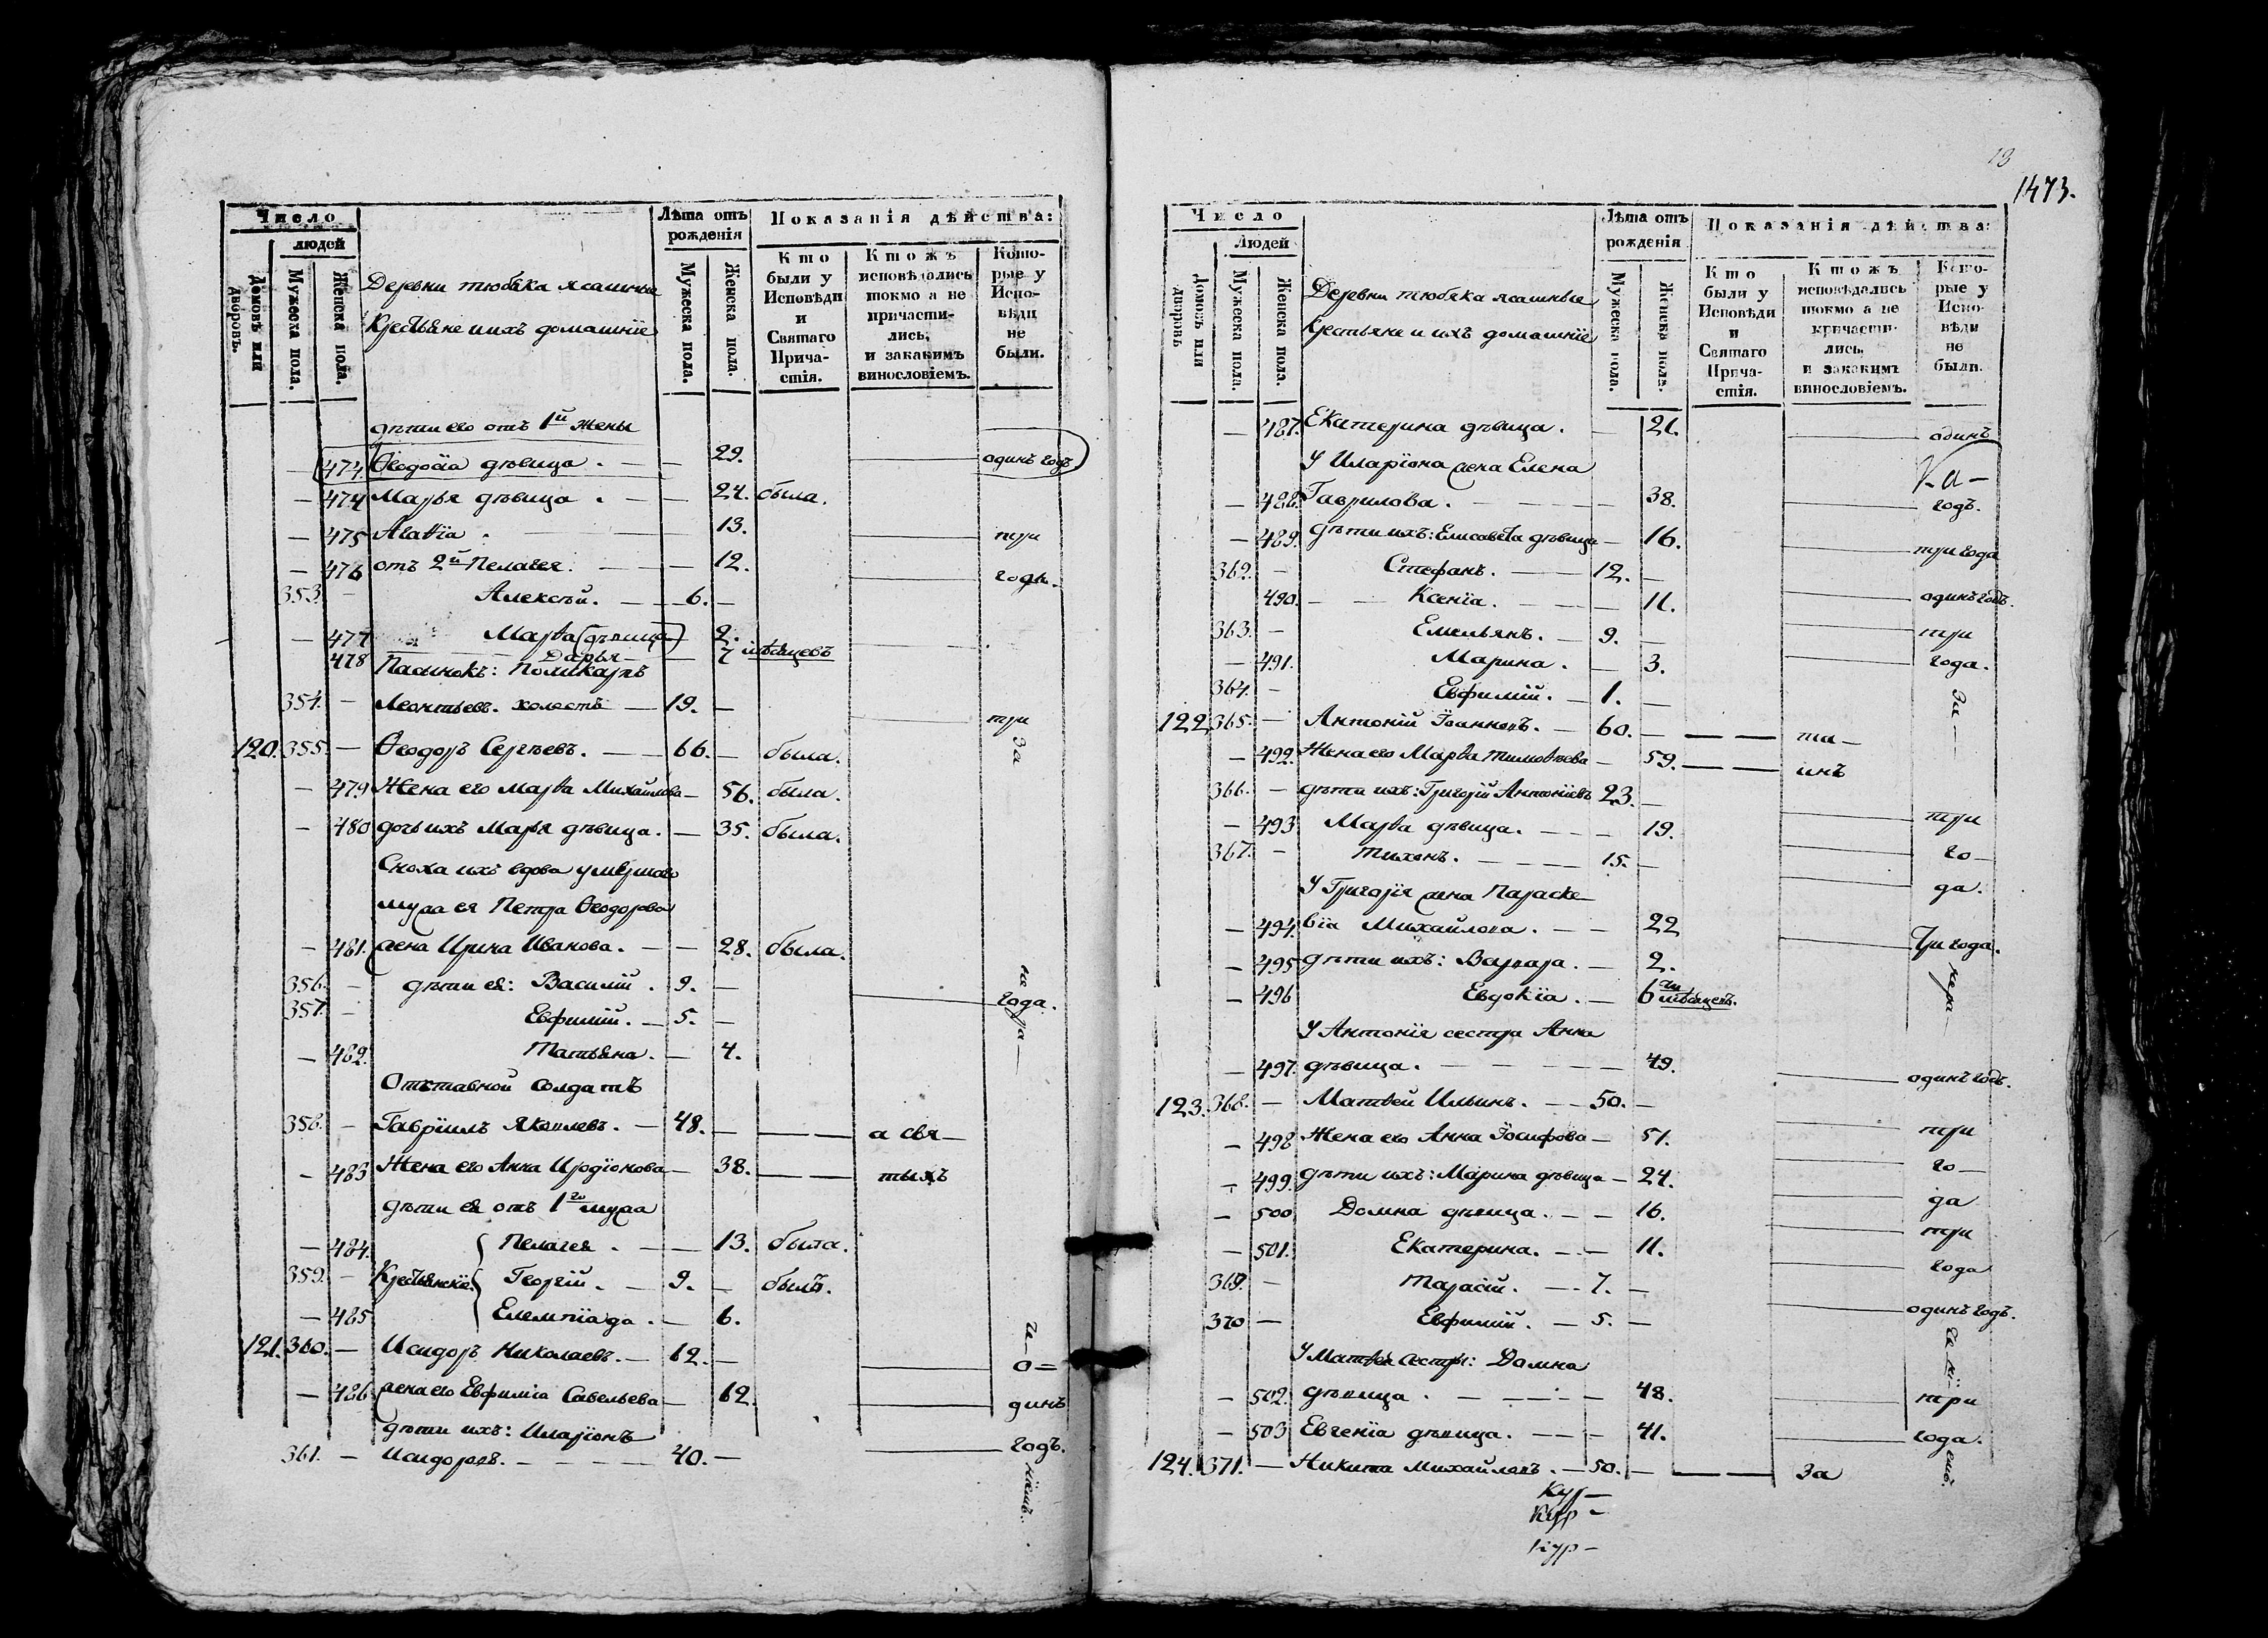 Число
людей
Домовъ или дворовъ.
Мужеска пола.
Женска пола.
Деревни тюбяка ясашные
Крестьяне и ихъ домашніе
Лѣта отъ рожденія
Мужеска пола.
Женска пола.
Показанія дѣйства:
Кто были у Исповѣди и Святаго Прича-стія.
Ктожъ исповѣдались токмо а не причасти-лись, и закакимъ винословіемъ.
Кото-рые у Испо-вѣди не были.
дѣти его отъ 1й жены
— 474 Ѳеодосіа дѣвица. — — 29. одинъ годъ
— 474 Марья дѣвица. — — 24. была.
— 475 Агаѳіа. — 13. три
— 476 отъ 2й Пелагея. — — 12. года.
353. — Алексѣй. — 6. —
— 477 Марѳа (дѣвица) 2.
478 Дарья — — 7 мѣсяцевъ
Пасынокъ: Поликарпъ
354. — Леонтьевъ. холостъ — 19. — три
120. 355. — Ѳеодоръ Сергѣевъ. — 66. — была. За
— 479 Жена его Марѳа Михайлова — 56. была.
— 480 дочь ихъ Марья дѣвица. — 35. была.
Сноха ихъ вдова умершаго
мужа ея Петра Ѳеодорова
— 481. жена Ирина Иванова. — — 28. была.
356. — дѣти ея: Василій. 9. —
357. — Евфимій. — 5. — года.
— 482. Татьяна. — 4.
Отставной солдатъ
358. — Гавріилъ Яковлевъ. — 48. — — — а свя —
— 483 Жена его Анна Иродіонова — 38. — — тыхъ
дѣти ея отъ 1го мужа
— 484. Пелагея. — — 13. была.
359. — Крестьянскіе Георгій. — 9. — былъ.
— 485 Елемпіада. — 6.
121. 360. — Исидоръ Николаевъ. — 62. — о=
— 486 жена его Евфиміа Савельева — 62. динъ
дѣти ихъ: Иларіонъ
361. — Исидоровъ. — — — — 40. — годъ.
13
1473.
Число
Людей
Домовъ или дворовъ
Мужеска пола.
Женска пола.
Деревни тюбяка ясашные
Крестьяне и ихъ домашніе
Лѣта отъ рожденія
Мужеска пола.
Женска пола.
Показанія дѣйства:
Кто были у Исповѣди и Святаго Прича-стія.
Ктожъ исповѣдались токмо а не причасти-лись, и закакимъ винословіемъ.
Кото-рые у Испо-вѣди не были.
— 487. Екатерина дѣвица. — 21. одинъ
У Иларіона жена Елена
— 488. Гаврилова. — — — 38. годъ.
— 489. дѣти ихъ: Елисавета дѣвица — 16. три года
362. — Стефанъ. — 12. —
490. — — Ксеніа. — — — 11. одинъ годъ.
363. — Емельянъ. — 9. — три
— 491. Марина. — 3. года.
364. — Евфимій. — 1. — За
122. 365. — Антоній Іоанновъ. — 60. — — — та —
— 492. Жена его Марѳа Тимоѳеева — 59. — — инъ
366. — дѣти ихъ: Григорій Антоніевъ 23. — три
— 493 Марѳа дѣвица. — — 19. го —
367. — Тихонъ. — — — 15. — да.
У Григорія жена Параске
— 494. віа Михайлова. — — 22 Три года.
— 495 дѣти ихъ: Варвара. — 2.
— 496 Евдокіа. — 6ти мѣсяцевъ.
У Антоніа сестра Анна
— 497. дѣвица. — — — — 49. одинъ годъ.
123. 368. — Матвей Ильинъ. — 50. —
— 498 Жена его Анна Іосифова — 51. три
— 499. дѣти ихъ: Марина дѣвица — 24. го —
— 500. Домна дѣвица. — — 16. да
— 501. Екатерина. — — 11. три
369. — Тарасій. — 7. — года
370 — Евфимій. — 5. — одинъ годъ.
У Матвея сестры: Домна
— 502. дѣвица. — — — 48. три
— 503 Евгеніа дѣвица. — — 41. года.
124. 371. — Никита Михайловъ. — 50. — — — За
Кур —
Кур —
Кур —